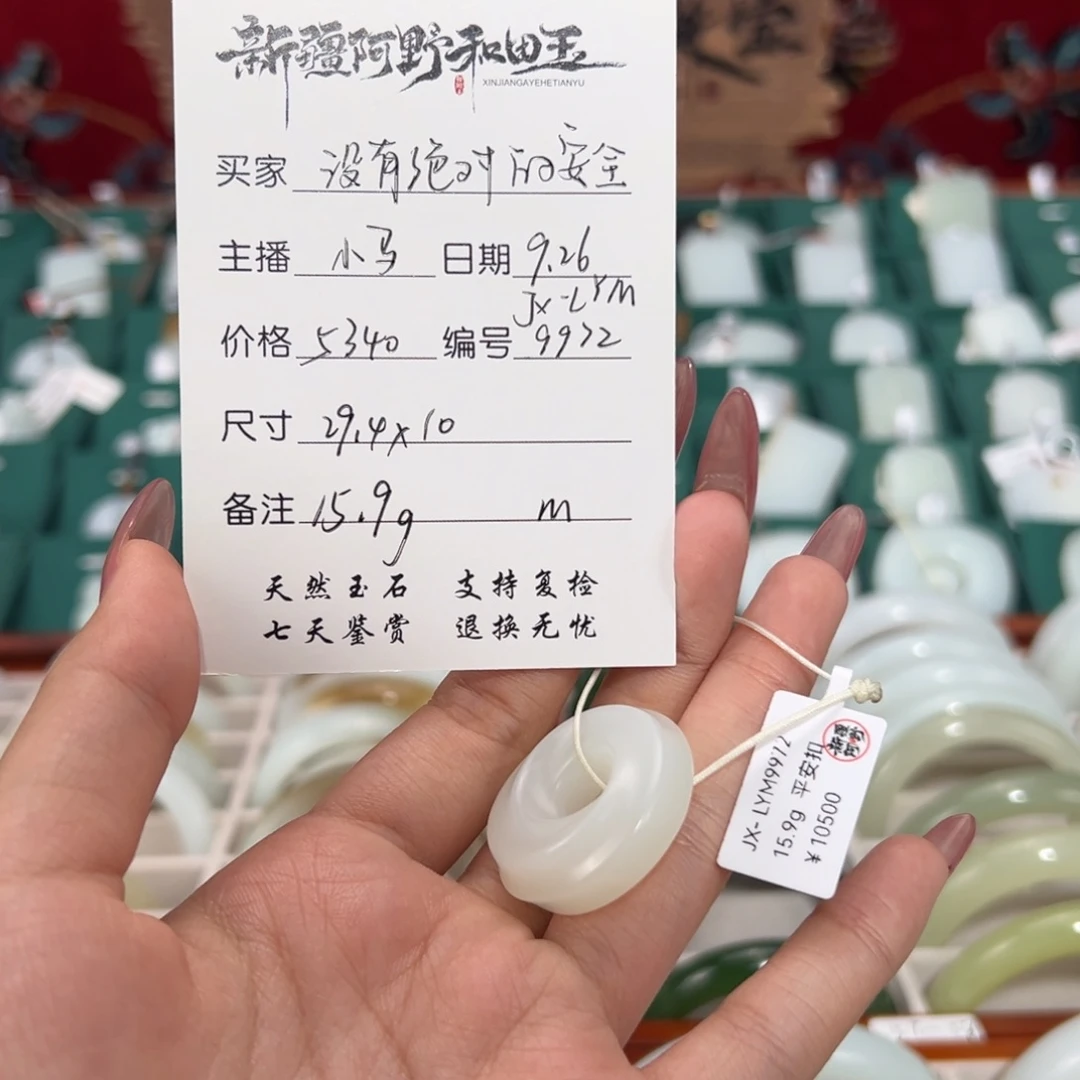 新疆阿野和田玉
XINJIANGAYEHETIANYU
买家 没有绝对的安全
主播 小马 日期 9.26
JX-LYM
价格 5340 编号 9972
尺寸 29.4x10
备注 15.9g m
天然玉石 支持复检
七天鉴赏 退换无忧
新疆阿野
JX- LYM9972
15.9g 平安扣
¥10500